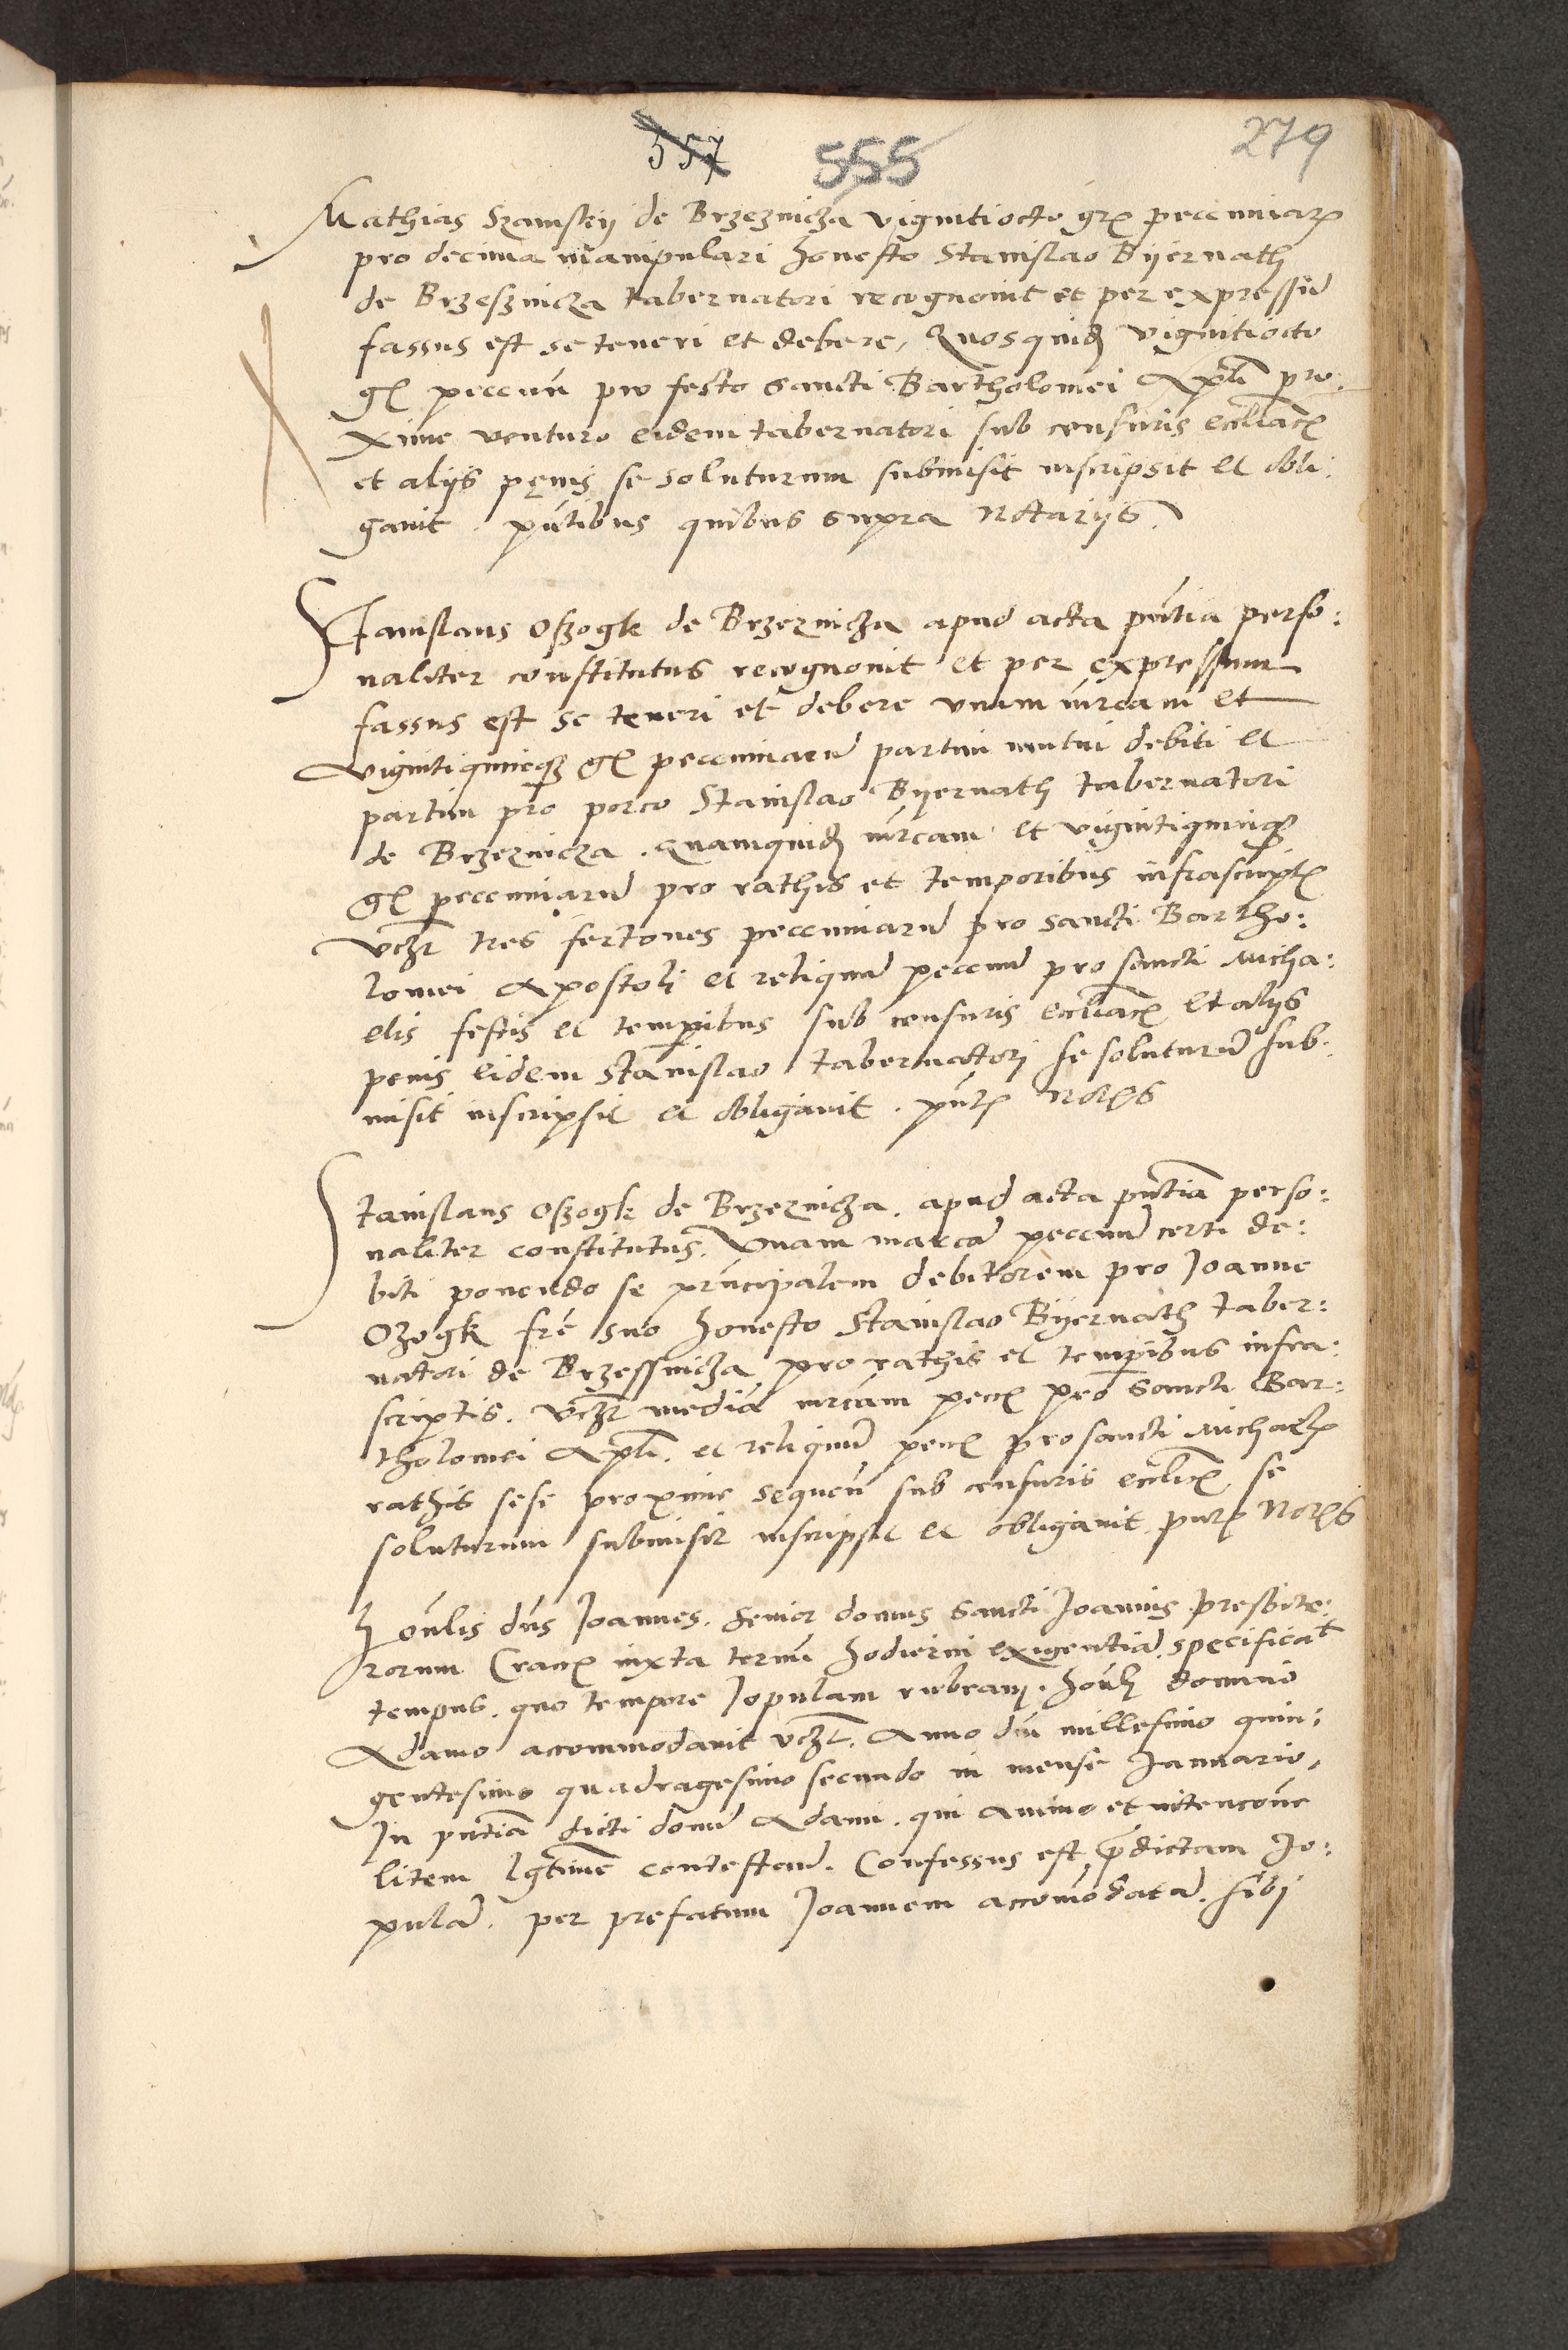 557 555 279
Mathias Szamskÿ de Brzeznicza vigintiocto gr pecuniar
pro decima manipulari honesto Stanislao Bÿernath
de Brzesznicza tabernatori recognovit et per expressu
fassus est se teneri et debere, Quosquid vigintiocto
gr peccun pro festo Sancti Bartholomei Apli pro:
xime venturo eidem tabernatori sub censuris eccliac
et alÿs pęnis se soluturum submisit inscripsit et obli:
gavit. pntibus quibus supra Notarÿs.
Stanislaus Oszogk de Brzeznicza apud acta pntia perso:
naliter constitutus recognovit et per expressum
fassus est se teneri et debere unam mrcam et
vigintiquinque gr peccuniaru partim mutui debiti et
partim pro porco Stanislao Bÿernath tabernatori
de Brzeznicza. Quamquid mrcam et vigintiquinque
gr peccuniaru pro rathis et temporibus infrascript
vczt tres fertones peccuniaru pro sancti Bartho:
lomei Apostoli et reliquu peccun pro sancti Micha:
elis festis et temporibus sub censuris eccliac et alÿs
penis eidem Stanislao tabernatori se soluturu sub:
misit inscripsit et obligavit. pnt Notrs
Stanislaus Oszogk de Brzeznicza. apud acta pntia perso:
naliter constitutus. Unam marca peccun certi de:
biti ponendo se principalem debitorem pro Joanne
Ozogk fre suo honesto Stanislao Bÿernath taber:
natori de Brzessnicza pro rathis et temporibus infra:
scriptis. vczt media mrcam pecc pro Sancti Bar:
tholomei Apli. et reliquu pecc pro sancti Michael
rathis sese proxime sequen sub censuris ecclic se
soluturum submisit inscripsit et obligavit pnt Notrs
Honlis dns Joannes. Senior domus Sancti Joannis presbite:
rorum Crac iuxta termi hodierni exigentia. specificat
tempus. quo tempore Jopulam rubeam. honli domino
Adamo accommodavit vczt. Anno dni millesimo quin:
gentesimo quadragesimo secundo in mense Januario,
In pntia dicti domi Adami. qui animo et intencone
litem lgtime contestand. Confessus est predictam Jo:
pula. per prefatum Joannem accomodata. sibi